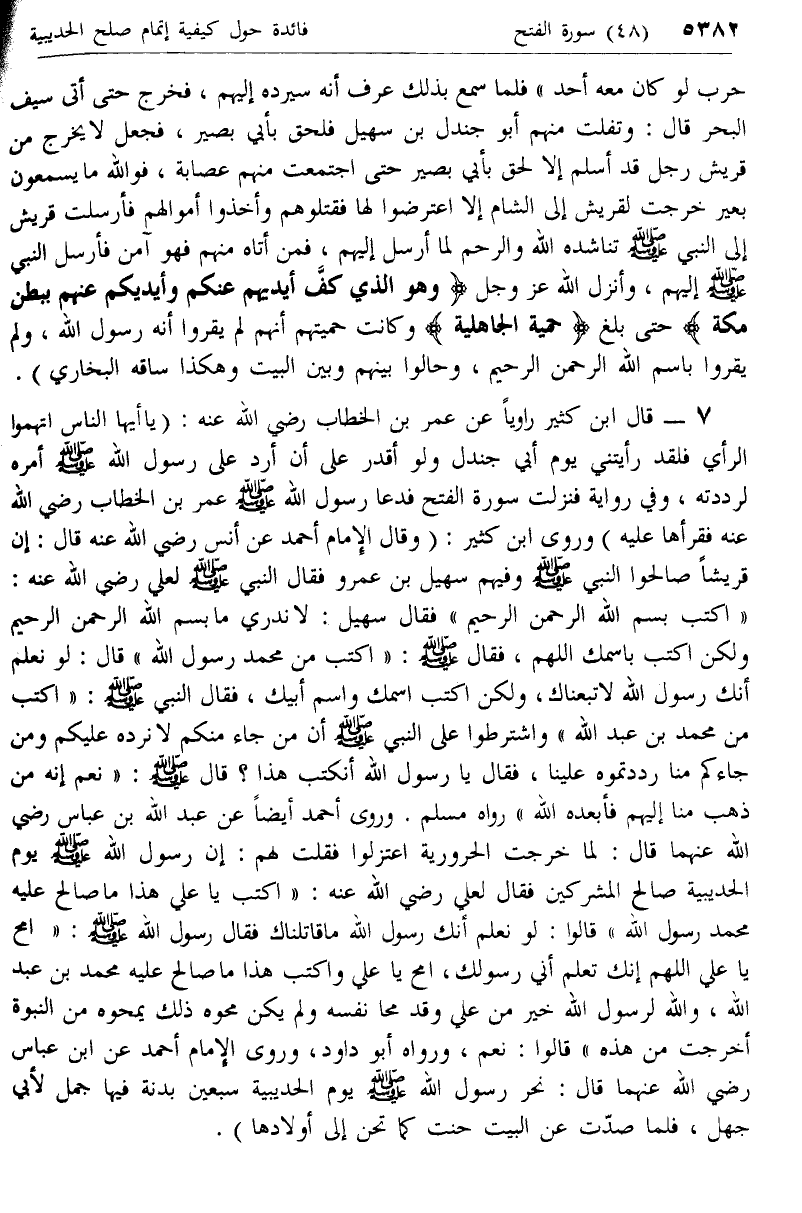 ٥٣٨٢ (٤٨) سورة الفتح فائدة حول كيفية إتمام صلح الحديبية
حرب لو كان معه أحد » فلما سمع بذلك عرف أنه سيرده إليهم ، فخرج حتى أتى سيف
البحر قال : وتفلت منهم أبو جندل بن سهيل فلحق بأبي بصير ، فجعل لا يخرج من
قريش رجل قد أسلم إلا لحق بأبي بصير حتى اجتمعت منهم عصابة ، فوالله ما يسمعون
بعير خرجت لقريش إلى الشام إلا اعترضوا لها فقتلوهم وأخذوا أموالهم فأرسلت قريش
إلى النبي ﷺ تناشده الله والرحم لما أرسل إليهم ، فمن أتاه منهم فهو آمن فأرسل النبي
ﷺ إليهم ، وأنزل الله عز وجل ﴿ وهو الذي كفَّ أيديهم عنكم وأيديكم عنهم ببطن
مكة ﴾ حتى بلغ ﴿ حمية الجاهلية ﴾ وكانت حميتهم أنهم لم يقروا أنه رسول الله ، ولم
يقروا باسم الله الرحمن الرحيم ، وحالوا بينهم وبين البيت وهكذا ساقه البخاري ) .
٧ ــ قال ابن كثير راوياً عن عمر بن الخطاب رضي الله عنه : ( يا أيها الناس اتهموا
الرأي فلقد رأيتني يوم أبي جندل ولو أقدر على أن أرد على رسول الله ﷺ أمره
لرددته ، وفي رواية فنزلت سورة الفتح فدعا رسول الله ﷺ عمر بن الخطاب رضي الله
عنه فقرأها عليه ) وروى ابن كثير : ( وقال الإمام أحمد عن أنس رضي الله عنه قال : إن
قريشاً صالحوا النبي ﷺ وفيهم سهيل بن عمرو فقال النبي ﷺ لعلي رضي الله عنه :
« اكتب بسم الله الرحمن الرحيم » فقال سهيل : لا ندري ما بسم الله الرحمن الرحيم
ولكن اكتب باسمك اللهم ، فقال ﷺ : « اكتب من محمد رسول الله » قال : لو نعلم
أنك رسول الله لاتبعناك، ولكن اكتب اسمك واسم أبيك ، فقال النبي ﷺ : « اكتب
من محمد بن عبد الله » واشترطوا على النبي ﷺ أن من جاء منكم لا نرده عليكم ومن
جاءكم منا رددتموه علينا ، فقال يا رسول الله أنكتب هذا ؟ قال ﷺ : « نعم إنه من
ذهب منا إليهم فأبعده الله » رواه مسلم . وروى أحمد أيضاً عن عبد الله بن عباس رضي
الله عنهما قال : لما خرجت الحرورية اعتزلوا فقلت لهم : إن رسول الله ﷺ يوم
الحديبية صالح المشركين فقال لعلي رضي الله عنه : « اكتب يا علي هذا ما صالح عليه
محمد رسول الله » قالوا : لو نعلم أنك رسول الله ما قاتلناك فقال رسول الله ﷺ : « امح
يا علي اللهم إنك تعلم أني رسولك، امح يا علي واكتب هذا ما صالح عليه محمد بن عبد
الله ، والله لرسول الله خير من علي وقد محا نفسه ولم يكن محوه ذلك يمحوه من النبوة
أخرجت من هذه » قالوا : نعم ، ورواه أبو داود، وروى الإمام أحمد عن ابن عباس
رضي الله عنهما قال : نحر رسول الله ﷺ يوم الحديبية سبعين بدنة فيها جمل لأبي
جهل ، فلما صدّت عن البيت حنت كما تحن إلى أولادها ) .